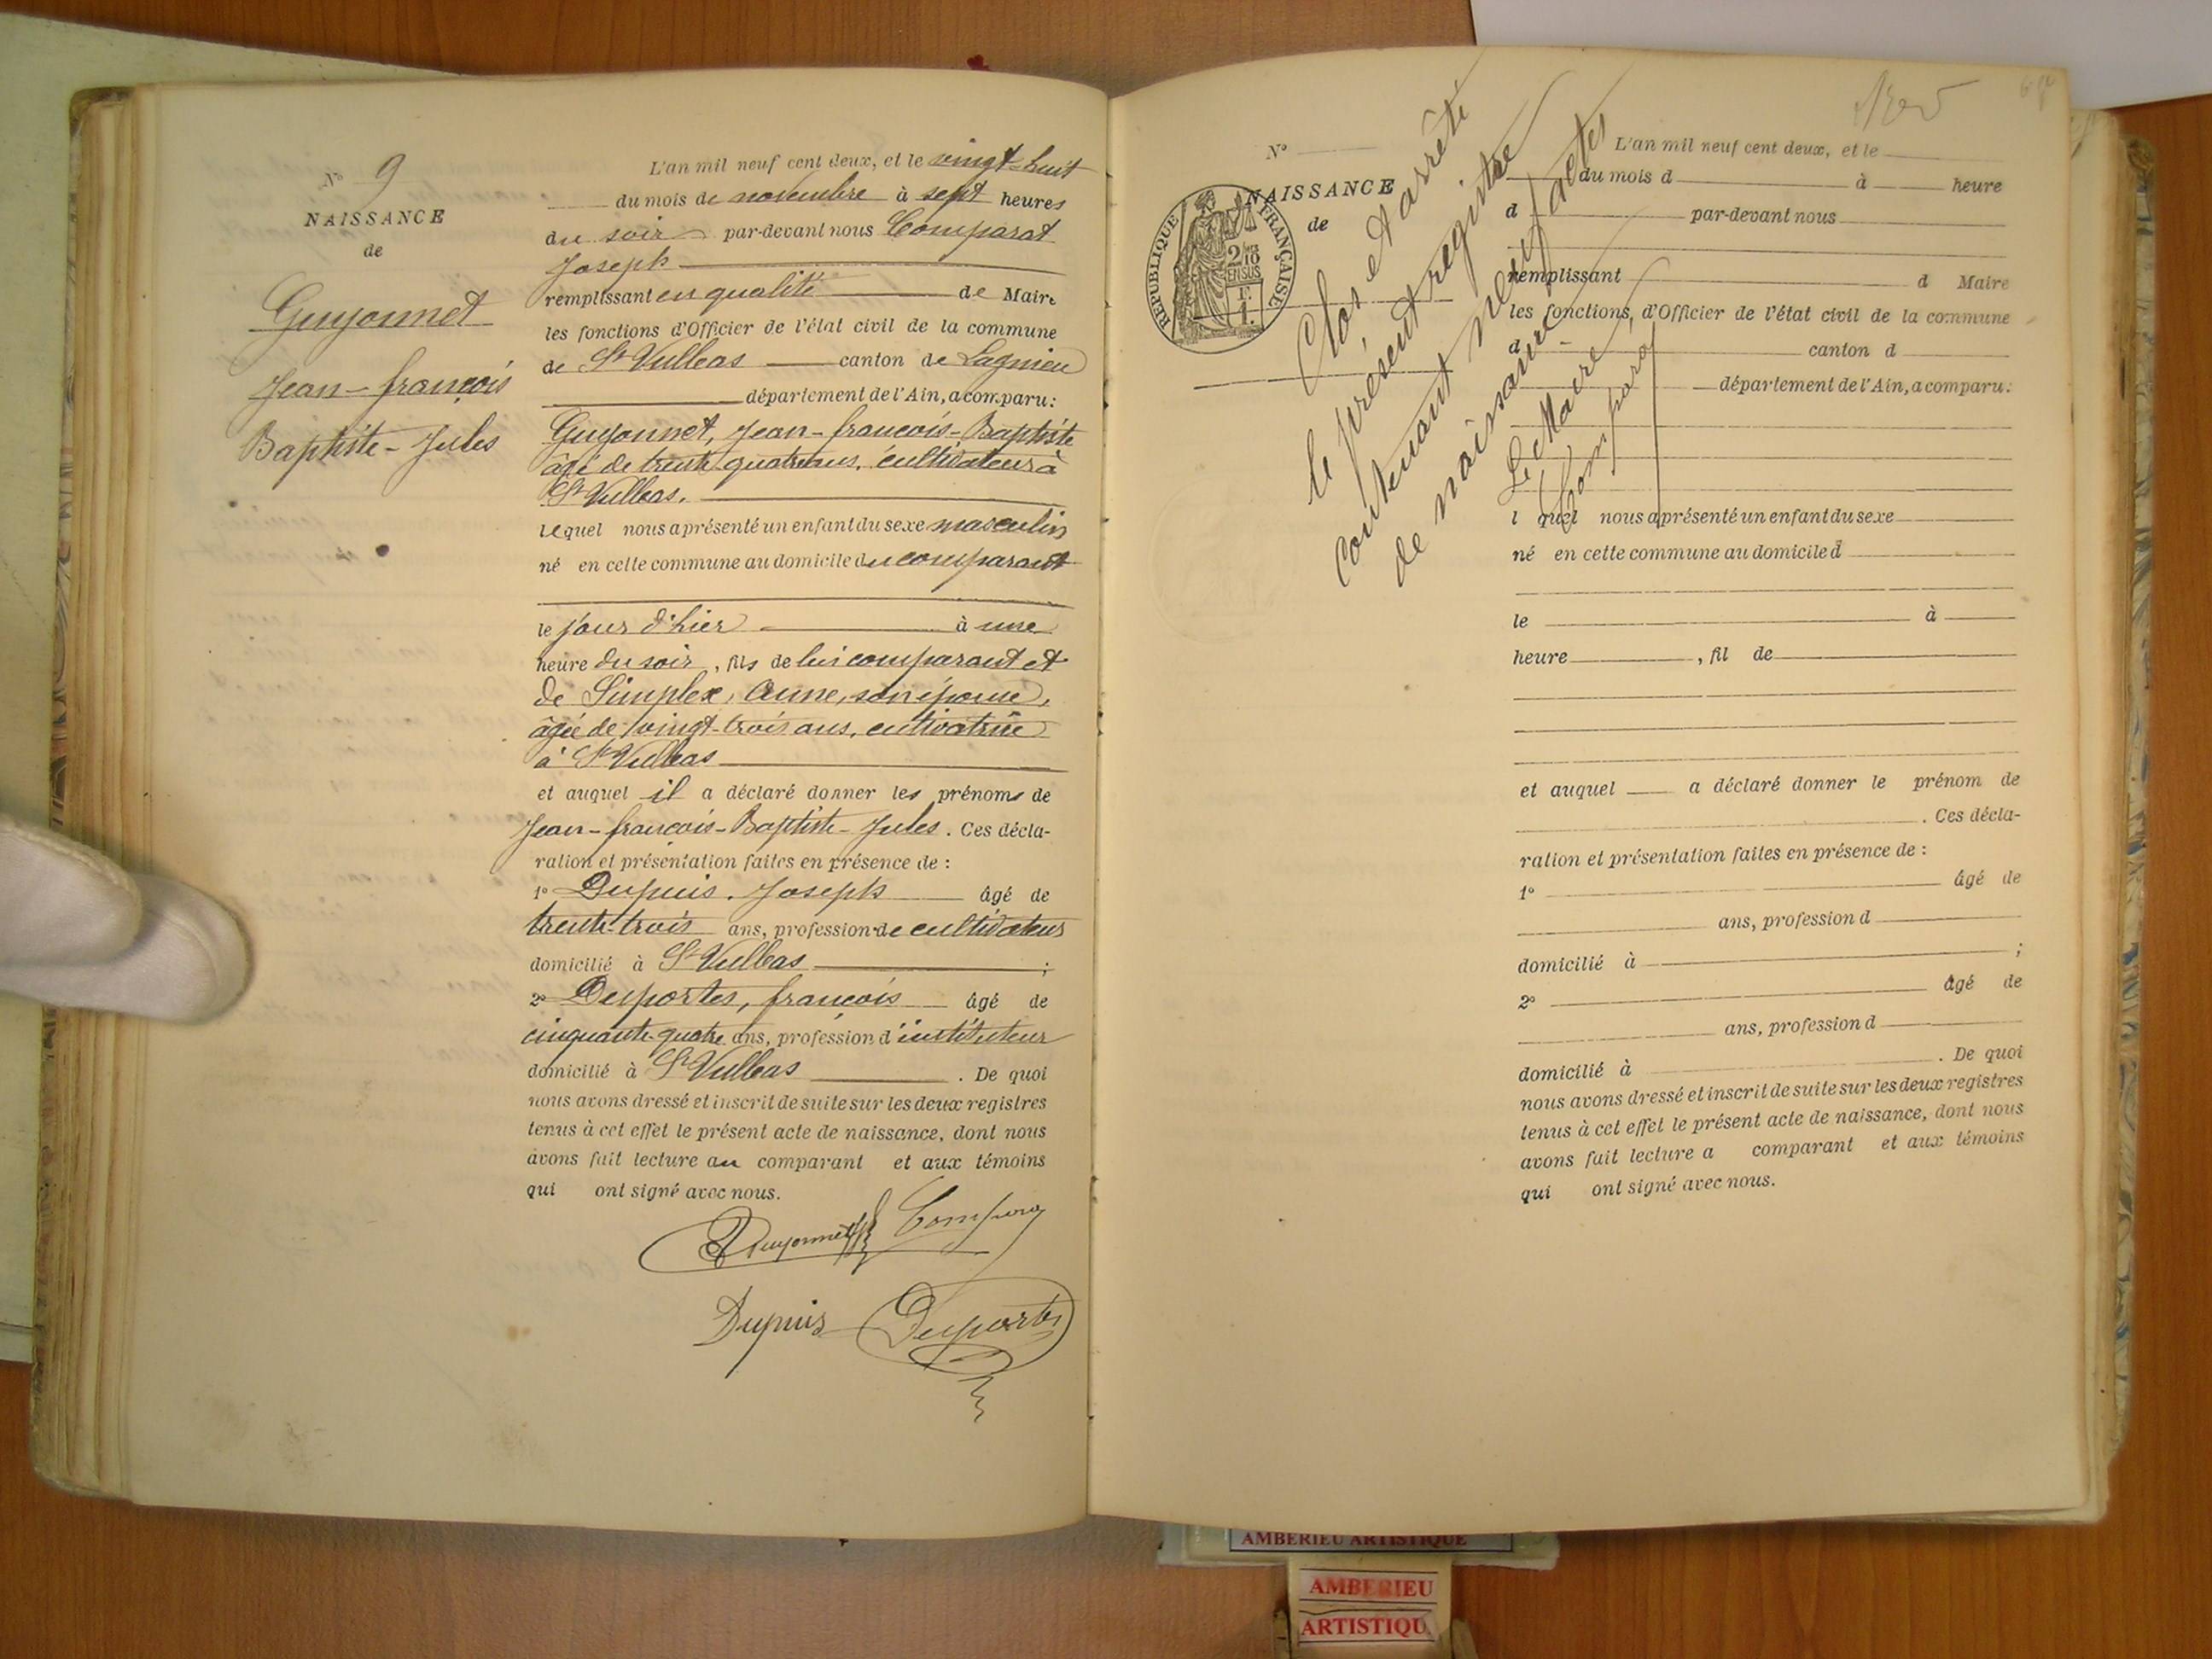 N° 9
NAISSANCE
de
Guyonnet
Jean-françois
Baptiste-Jules
L'an mil neuf cent deux, et le vingt-huit
du mois de novembre à sept heures
du soir par-devant nous Comparat
Joseph
remplissant en qualité de Maire
les fonctions d'Officier de l'état civil de la commune
de St Vulbas canton de Lagnieu
département de l'Ain, a comparu:
Guyonnet, Jean-françois-Baptiste
âgé de trente quatre ans, cultivateur à
St Vulbas.
lequel nous a présenté un enfant du sexe masculin
né en cette commune au domicile du comparant
le jour d'hier à une
heure du soir, fils de lui comparant et
de Simplex, Anne, son épouse,
âgée de vingt-trois ans, cultivatrice
à St Vulbas
et auquel il a déclaré donner les prénoms de
Jean-françois-Baptiste-Jules. Ces décla-
ration et présentation faites en présence de :
1° Dupuis, Joseph âgé de
trente-trois ans, profession de cultivateur
domicilié à St Vulbas ;
2° Desportes, françois âgé de
cinquante-quatre ans, profession d'instituteur
domicilié à St Vulbas . De quoi
nous avons dressé et inscrit de suite sur les deux registres
tenus à cet effet le présent acte de naissance, dont nous
avons fait lecture au comparant et aux témoins
qui ont signé avec nous.
Guyonnet Compara
Dupuis Desportes
N°
NAISSANCE
de
RÉPUBLIQUE FRANÇAISE
2/10
EN SUS
1 F.
Clos et arrêté
le présent registre
contenant neuf actes
de naissance
Le Maire
Compara
L'an mil neuf cent deux, et le
du mois d à heure
d par-devant nous
remplissant d Maire
les fonctions d'Officier de l'état civil de la commune
d canton d
département de l'Ain, a comparu:
l quel nous a présenté un enfant du sexe
né en cette commune au domicile d
le à
heure , fil de
et auquel a déclaré donner le prénom de
. Ces décla-
ration et présentation faites en présence de :
1° âgé de
ans, profession d
domicilié à ;
2° âgé de
ans, profession d
domicilié à . De quoi
nous avons dressé et inscrit de suite sur les deux registres
tenus à cet effet le présent acte de naissance, dont nous
avons fait lecture a comparant et aux témoins
qui ont signé avec nous.
AMBERIEU ARTISTIQUE
AMBERIEU
ARTISTIQU